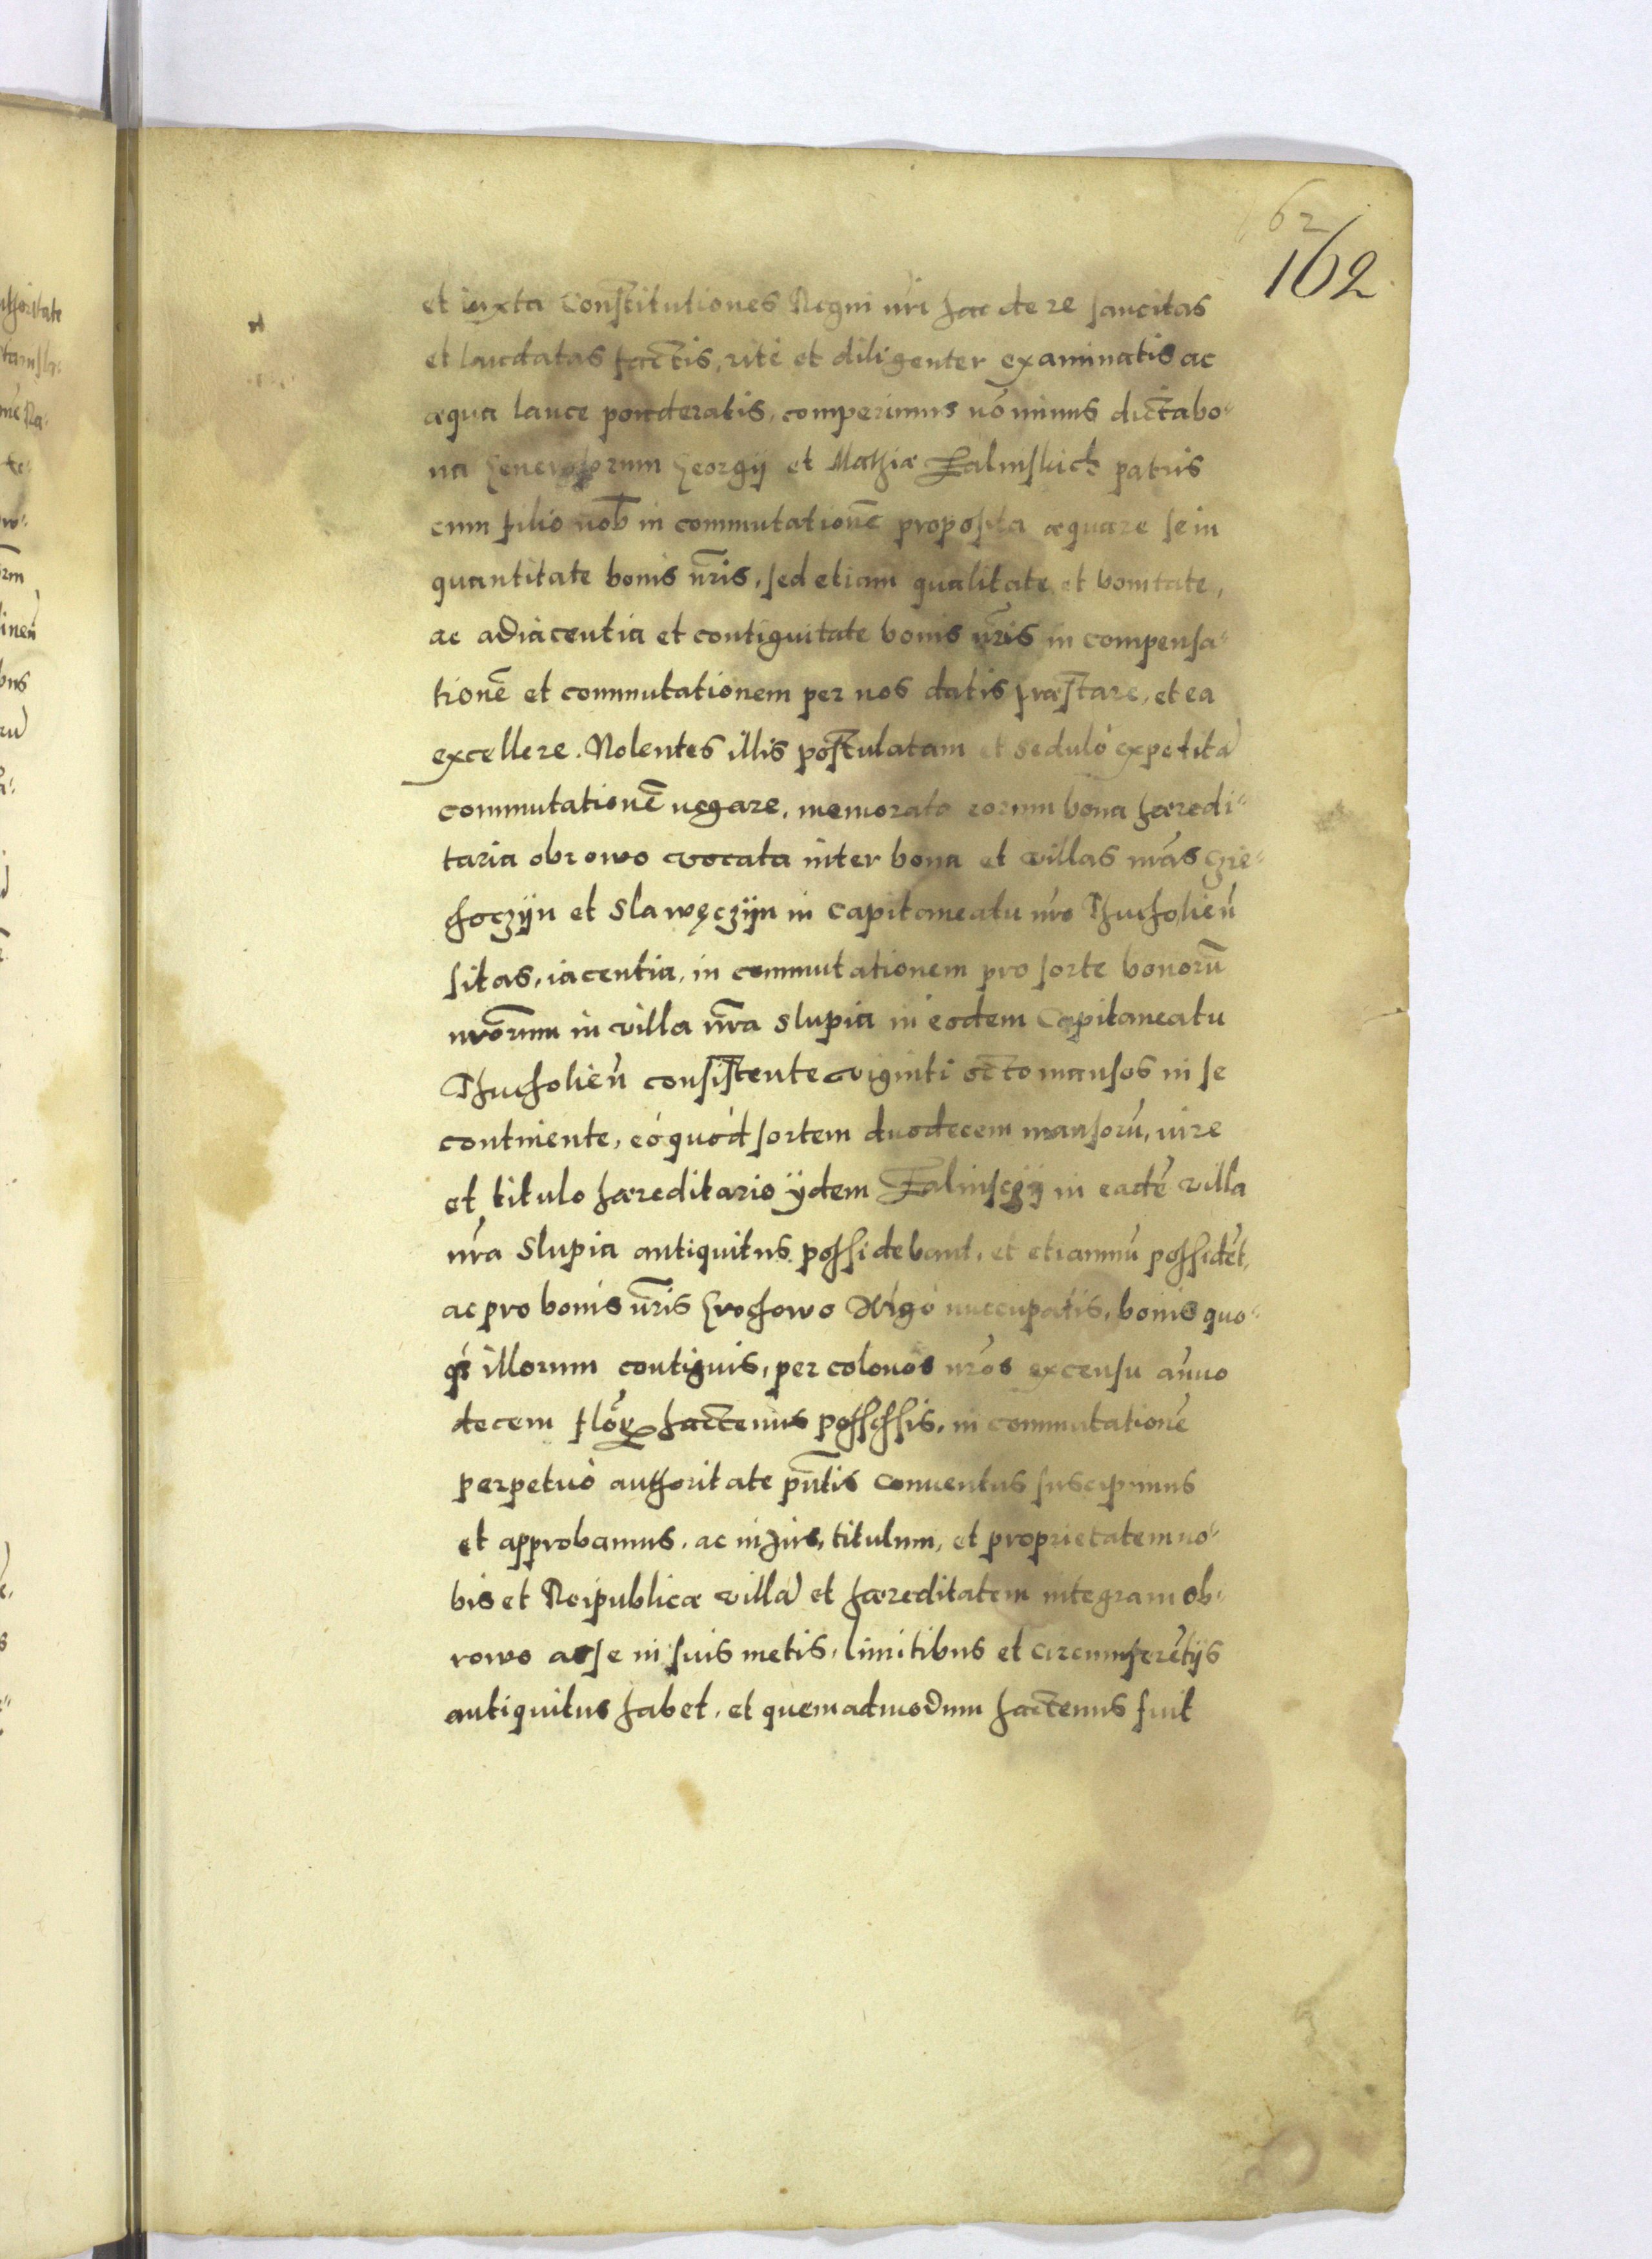 162
162
et iuxta Constitutiones Regni nr̃i hac de re sancitas
et laudatas factis, rite et diligenter examinatis ac
æqua lance ponderatis, comperimus nõ minus dicta bo-
na Generosorum Georgij et Mathiæ Zalinskich patris
cum filio nob̃ in commutationẽ proposita æquare se in
quantitate bonis nr̃is, sed etiam qualitate et bonitate,
ac adiacentia et contiguitate bonis nr̃is in compensa-
tionẽ et commutationem per nos datis præstare, et ea
excellere. Nolentes illis postulatam et sedulò expetitã
commutationẽ negare, memorata eorum bona hæredi-
taria obrowo vocata inter bona et villas nr̃as Gie-
choczÿn et Slawęczÿn in Capitaneatu nr̃o Thucholieñ
sitas, iacentia, in commutationem pro sorte bonorũ
nr̃orum in villa nr̃a Slupia in eodem Capitaneatu
Thucholieñ consistente viginti octo mansos in se
continente, eò quòd sortem duodecem mansorũ, iure
et titulo hæreditario ÿdem Zalinscÿ in eadẽ villa
nr̃a Slupia antiquitus possidebant, et etiamnũ possidẽt,
ac pro bonis nr̃is Grochowo Wlgò nuccupatis, bonis quo-
q́ illorum contiguis, per colonos nr̃os ex censu añuo
decem flõr hactenus possessis, in commutationẽ
perpetuò authoritate pñtis Conuentus suscipimus
et approbamus, ac in jus, titulum, et proprietatem no-
bis et Reipublicæ villã et hæreditatem integram ob-
rowo a se in suis metis, limitibus et circumferẽtijs
antiquitus habet, et quemadmodum hactenus fuit